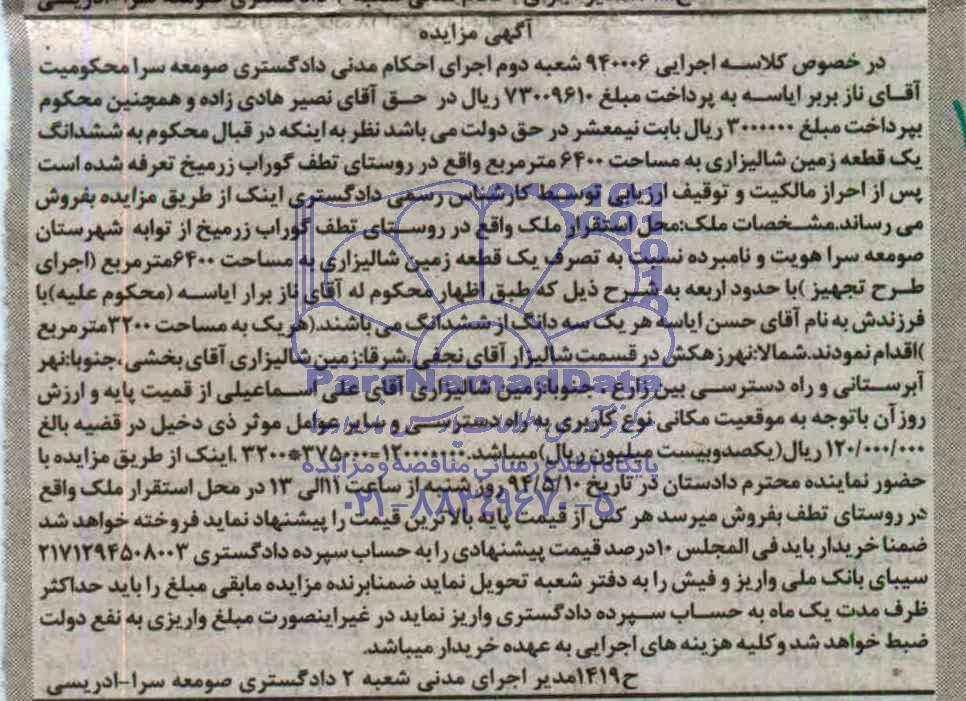 آگهی مزایده
در خصوص کلاسه اجرایی ۹۴۰۰۰۶ شعبه دوم اجرای احکام مدنی دادگستری صومعه سرا محکومیت
آقای ناز بربر ایاسه به پرداخت مبلغ ۷۳۰۰۹۶۱۰ ریال در حق آقای نصیر هادی زاده و همچنین محکوم
بپرداخت مبلغ ۳۰۰۰۰۰۰ ریال بابت نیمعشر در حق دولت می باشد نظر به اینکه در قبال محکوم به ششدانگ
یک قطعه زمین شالیزاری به مساحت ۶۴۰۰ مترمربع واقع در روستای تطف گوراب زرمیخ تعرفه شده است
پس از احراز مالکیت و توقیف ارزیابی توسط کارشناس رسمی دادگستری اینک از طریق مزایده بفروش
می رساند.مشخصات ملک:محل استقرار ملک واقع در روستای تطف گوراب زرمیخ از توابه شهرستان
صومعه سرا هویت و نامبرده نسبت به تصرف یک قطعه زمین شالیزاری به مساحت ۶۴۰۰مترمربع (اجرای
طرح تجهیز )با حدود اربعه به شرح ذیل که طبق اظهار محکوم له آقای ناز برار ایاسه (محکوم علیه)با
فرزندش به نام آقای حسن ایاسه هر یک سه دانگ از ششدانگ می باشند.(هر یک به مساحت ۳۲۰۰مترمربع
)اقدام نمودند.شمالا:نهرزهکش در قسمت شالیزار آقای نجفی ،شرقا:زمین شالیزاری آقای بخشی ،جنوبا:نهر
آبرستانی و راه دسترسی بین زارع ، جنوبا:زمین شالیزاری آقای علی اسماعیلی از قمیت پایه و ارزش
روز آن باتوجه به موقعیت مکانی نوع کاربری به راه دسترسی و سایر عوامل موثر ذی دخیل در قضیه بالغ
۱۲۰/۰۰۰/۰۰۰ ریال(یکصدوبیست میلیون ریال)میباشد.۱۲۰۰۰۰۰۰۰=۳۷۵۰۰۰*۳۲۰۰ .اینک از طریق مزایده با
حضور نماینده محترم دادستان در تاریخ ۹۴/۵/۱۰ روز شنبه از ساعت ۱۱الی ۱۳ در محل استقرار ملک واقع
در روستای تطف بفروش میرسد هر کس از قیمت پایه بالاترین قیمت را پیشنهاد نماید فروخته خواهد شد
ضمنا خریدار باید فی المجلس ۱۰درصد قیمت پیشنهادی را به حساب سپرده دادگستری ۲۱۷۱۲۹۴۵۰۸۰۰۳
سیبای بانک ملی واریز و فیش را به دفتر شعبه تحویل نماید ضمنابرنده مزایده مابقی مبلغ را باید حداکثر
ظرف مدت یک ماه به حساب سپرده دادگستری واریز نماید در غیراینصورت مبلغ واریزی به نفع دولت
ضبط خواهد شد وکلیه هزینه های اجرایی به عهده خریدار میباشد.
ح۱۴۱۹مدیر اجرای مدنی شعبه ۲ دادگستری صومعه سرا-ادریسی
ParsNamadData
پایگاه اطلاع رسانی مناقصه و مزایده
۰۲۱-۸۸۳۴۹۶۷۰-۵